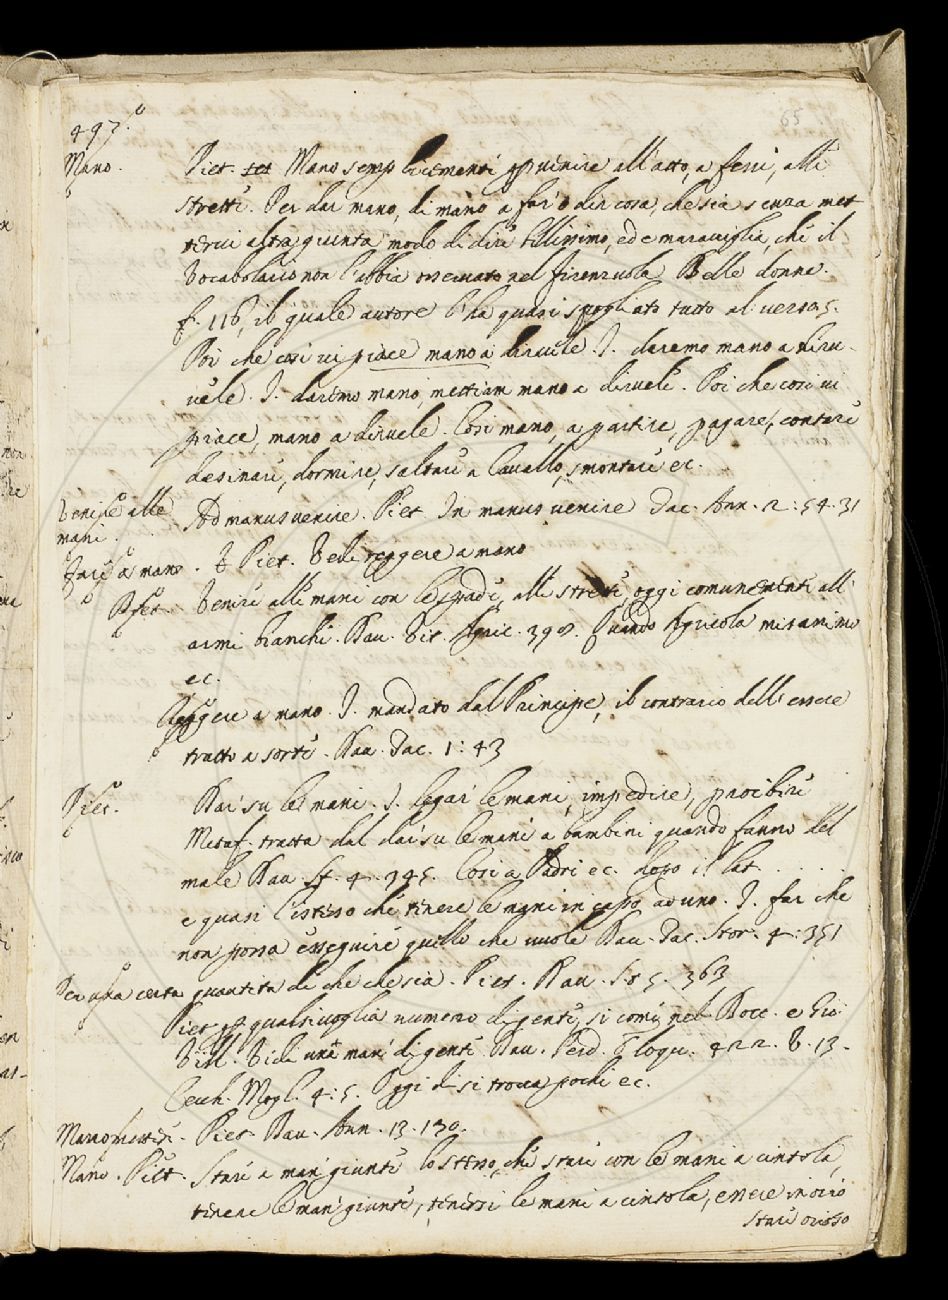 65
497.
Mano. Piet. Mano semplicemente venire all'atto, a ferri, alle
strette. Per dar mano, di mano a far o dir cosa, che sia senza met
tervi altra giunta modo di dire bellissimo, ed e maraviglia, che il
Vocabolario non l'abbia osservato nel Firenzuola Belle donne.
f. 116, il quale autore l'ha quasi spogliato tutto al verso 5.
Poi che cosi vi piace mano a dirvele I. daremo mano a dirve
vele. I. daremo mano, mettiam mano a dirvele. Poi che cosi vi
piace, mano a dirvele. Cosi mano, a partire, pagare, contare
desinare, dormire, saltare a Cavallo, smontare ec.
Venire alle Ad manus venire. Piet. In manus venire Tac. Ann. 2: 54. 31
mani.
a mano. Piet. Vedi reggere a mano
Piet. Venire alle mani con le spade, alle strette, oggi comunemente all
armi bianche. Dav. Vit. Agric. 398. Quando Agricola
ec.
Reggere a mano. I. mandato dal Principe, il contrario dell' essere
tratto a sorte. Dav. Tac. 1: 43
Piet. Dar su le mani. I. legar le mani, impedire, proibire
Metaf. tratta dal dar su le mani a bambini quando fanno del
male Dav. St. 4. 345. Cosi a Padri ec. il lat. . . . .
e quasi l'istesso che tenere le mani in capo ad uno. I. far che
non possa esseguire quello che vuole Dav. Tac. Stor. 4: 351
Per una certa quantita di che che sia. Piet. Dav. St 5. 363
Piet. qualsivoglia numero di gente, si come nel Bocc. e Gio
Vill. Vide una man di gente Dav. Perd. Eloqu. 422. V. 13.
Cecch. Mogl. 4: 5. Oggi si trova pochi ec.
Manomettere. Piet. Dav. Ann. 13. 170.
Mano. Piet. Stare a man giunte lo stesso, che stare con le mani a cintola,
tenere le man giunte, tenersi le mani a cintola, essere in ozio
stare ozioso